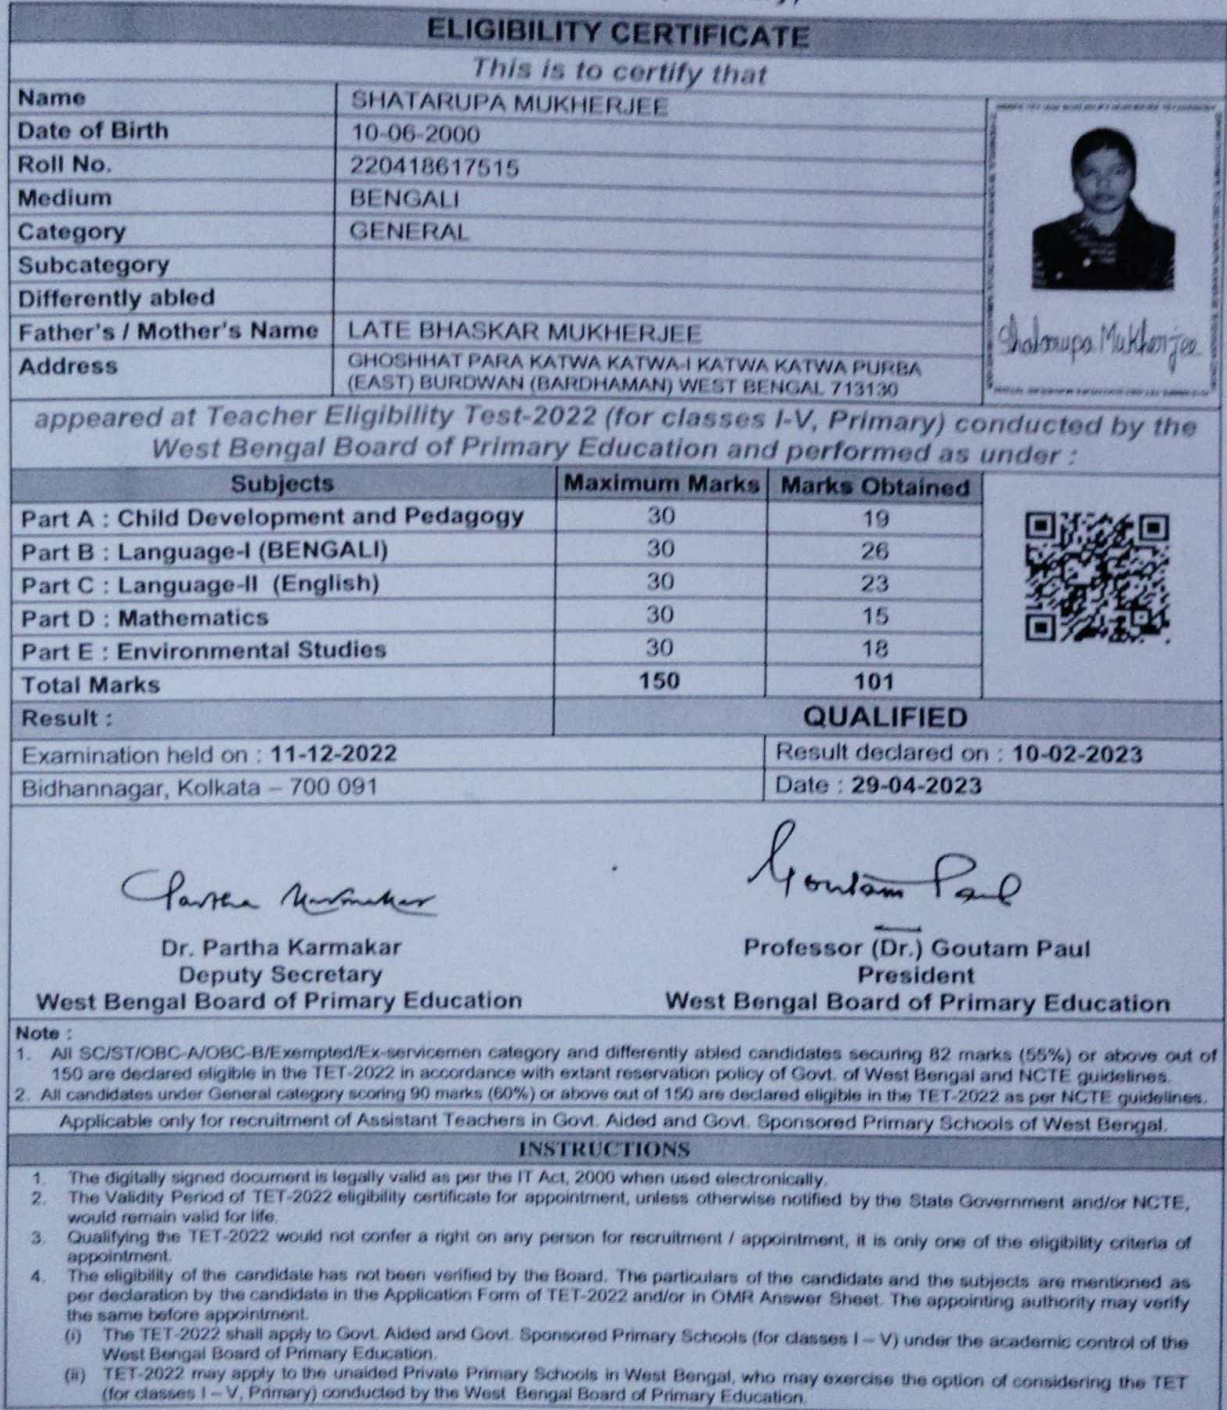 ELIGIBILITY CERTIFICATE
This is to certify that
Name SHATARUPA MUKHERJEE
Date of Birth 10-06-2000
Roll No. 220418617515
Medium BENGALI
Category GENERAL
Subcategory
Differently abled
Father's / Mother's Name LATE BHASKAR MUKHERJEE
Address GHOSHHAT PARA KATWA KATWA-I KATWA KATWA PURBA
(EAST) BURDWAN (BARDHAMAN) WEST BENGAL 713130
Shatarupa Mukherjee
appeared at Teacher Eligibility Test-2022 (for classes I-V, Primary) conducted by the
West Bengal Board of Primary Education and performed as under :
Subjects Maximum Marks Marks Obtained
Part A : Child Development and Pedagogy 30 19
Part B : Language-I (BENGALI) 30 26
Part C : Language-II (English) 30 23
Part D : Mathematics 30 15
Part E : Environmental Studies 30 18
Total Marks 150 101
Result : QUALIFIED
Examination held on : 11-12-2022 Result declared on : 10-02-2023
Bidhannagar, Kolkata – 700 091 Date : 29-04-2023
Partha Karmakar Goutam Paul
Dr. Partha Karmakar Professor (Dr.) Goutam Paul
Deputy Secretary President
West Bengal Board of Primary Education West Bengal Board of Primary Education
Note :
1. All SC/ST/OBC-A/OBC-B/Exempted/Ex-servicemen category and differently abled candidates securing 82 marks (55%) or above out of
150 are declared eligible in the TET-2022 in accordance with extant reservation policy of Govt. of West Bengal and NCTE guidelines.
2. All candidates under General category scoring 90 marks (60%) or above out of 150 are declared eligible in the TET-2022 as per NCTE guidelines.
Applicable only for recruitment of Assistant Teachers in Govt. Aided and Govt. Sponsored Primary Schools of West Bengal.
INSTRUCTIONS
1. The digitally signed document is legally valid as per the IT Act, 2000 when used electronically.
2. The Validity Period of TET-2022 eligibility certificate for appointment, unless otherwise notified by the State Government and/or NCTE,
would remain valid for life.
3. Qualifying the TET-2022 would not confer a right on any person for recruitment / appointment, it is only one of the eligibility criteria of
appointment.
4. The eligibility of the candidate has not been verified by the Board. The particulars of the candidate and the subjects are mentioned as
per declaration by the candidate in the Application Form of TET-2022 and/or in OMR Answer Sheet. The appointing authority may verify
the same before appointment.
(i) The TET-2022 shall apply to Govt. Aided and Govt. Sponsored Primary Schools (for classes I – V) under the academic control of the
West Bengal Board of Primary Education.
(ii) TET-2022 may apply to the unaided Private Primary Schools in West Bengal, who may exercise the option of considering the TET
(for classes I – V, Primary) conducted by the West Bengal Board of Primary Education.